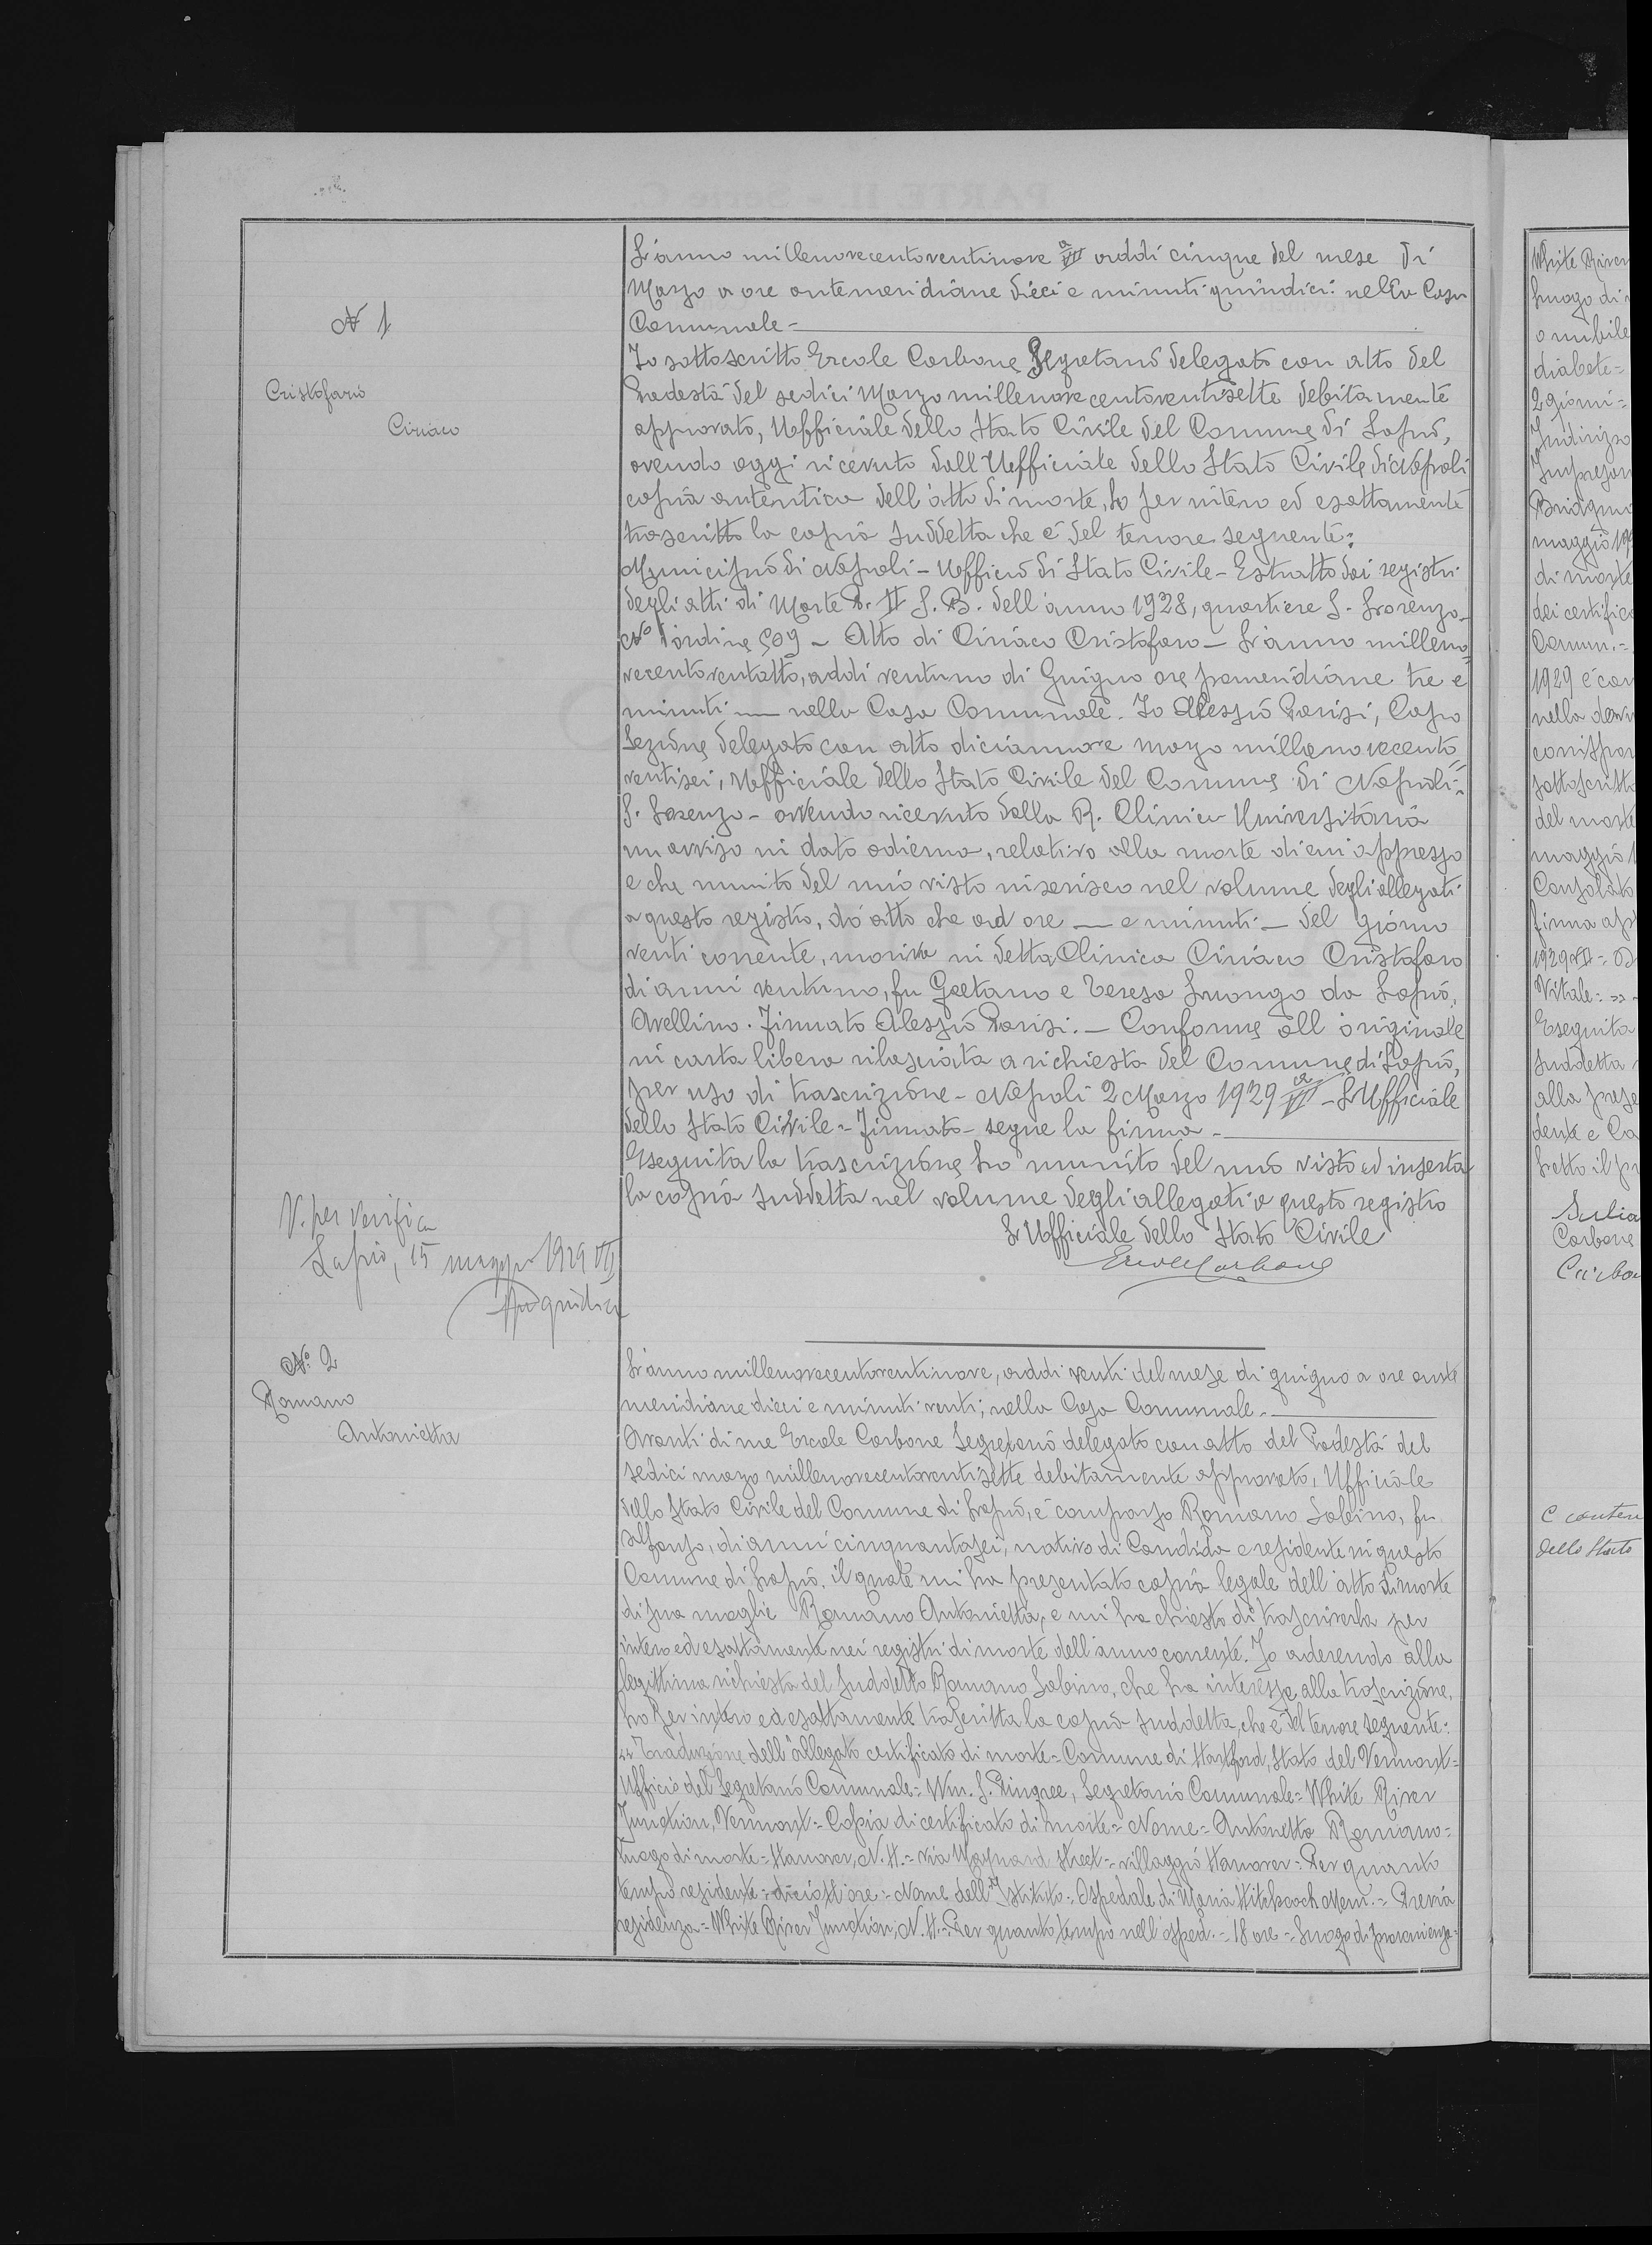 N 1
Cristofaro
Ciriaco
L'anno millenovecentoventinove a VII addì cinque del mese di
Marzo a ore antemeridiane dieci e minuti quindici nella Casa
Comunale -
Io sottoscritto Ercole Carbone Segretario delegato con atto del
Podestà del sedici Marzo millenovecentoventisette debitamente
approvato, Uefficiale dello Stato Civile del Comune di Lapio,
avendo oggi ricevuto dall'Uefficiale dello Stato Civile di Napoli
copia autentica dell'atto di morte, ho per intero ed esattamente
trascritto la copia suddetta che è del tenore seguente:
Municipio di Napoli - Uefficio di Stato Civile - Estratto dai registri
degli atti di Morte P. II S. B. dell'anno 1928, quartiere S. Lorenzo -
No d'ordine 509 - Atto di Ciriaco Cristofaro - L'anno milleno=
vecentoventotto, addì ventuno di Giugno ore pomeridiane tre e
minuti — nella Casa Comunale. Io Alessio Parisi, Capo
Sezione delegato con atto diciannove marzo millenovecento=
ventisei, Uefficiale dello Stato Civile del Comune di Napoli -
S. Lorenzo - avendo ricevuto dalla R. Clinica Universitaria
un avviso in data odierna, relativo alla morte di cui appresso
e che munito del mio visto inserisco nel volume degli allegati
a questo registro, do atto che ad ore — e minuti — del giorno
venti corrente, moriva in detta Clinica Ciriaco Cristofaro
di anni ventuno, fu Gaetano e Teresa Luongo da Lapio,
Avellino. Firmato Alessio Parisi. — Conforme all'originale
in carta libera rilasciata a richiesta del Comune di Lapio,
per uso di trascrizione - Napoli 2 Marzo 1929 a VII - L'Ufficiale
dello Stato Civile - Firmato - segue la firma -
Eseguita la trascrizione ho munito del mio visto ed inserta
la copia suddetta nel volume degli allegati a questo registro
L'Ufficiale dello Stato Civile
Ercole Carbone
V. per verifica
Lapio, 15 maggio 1929 VII
N° 2
Romano
Antonietta
L'anno millenovecentoventinove, addì venti del mese di giugno a ore ante
meridiane dieci e minuti venti, nella Casa Comunale -
Avanti di me Ercole Carbone Segretario delegato con atto del Podestà del
sedici marzo millenovecentoventisette debitamente approvato, Ufficiale
dello Stato Civile del Comune di Lapio, è comparso Romano Sabino, fu
Alfonso, di anni cinquantasei, nativo di Candida e residente in questo
Comune di Lapio, il quale mi ha presentato copia legale dell'atto di morte
di sua moglie Romano Antonietta, e mi ha chiesto di trascriverla per
intero ed esattamente nei registri di morte dell'anno corrente. Io aderendo alla
legittima richiesta del suddetto Romano Sabino, che ha interesse alla trascrizione,
ho per intero ed esattamente trascritta la copia suddetta, che è del tenore seguente:
"Traduzione dell'allegato certificato di morte = Comune di Hartford, Stato del Vermont =
Ufficio del Segretario Comunale = Wm. S. Pingree, Segretario Comunale = White River
Junction, Vermont = Copia di certificato di morte = Nome = Antonetta Romano =
Luogo di morte = Hanover, N. H. = via Maynard Street = villaggio Hanover = Per quanto
tempo residente = diciott'ore = Nome dell'Istituto = Ospedale di Maria Hitchcock Mem. = Previa
residenza = White River Junction, N. H. = Per quanto tempo nell'osped. = 18 ore = Luogo di provenienza =
White River
Luogo di
o nubile
diabete =
2 giorni =
Indirizzo
maggio
di morte
dei certific
Comun. =
1929 è con
nella
corrispon
sottoscritto
del morte
maggio
Consolato
firma
1929 VII =
Vitale =
Eseguita
suddetta
alla prese
Carbone
dello Stato